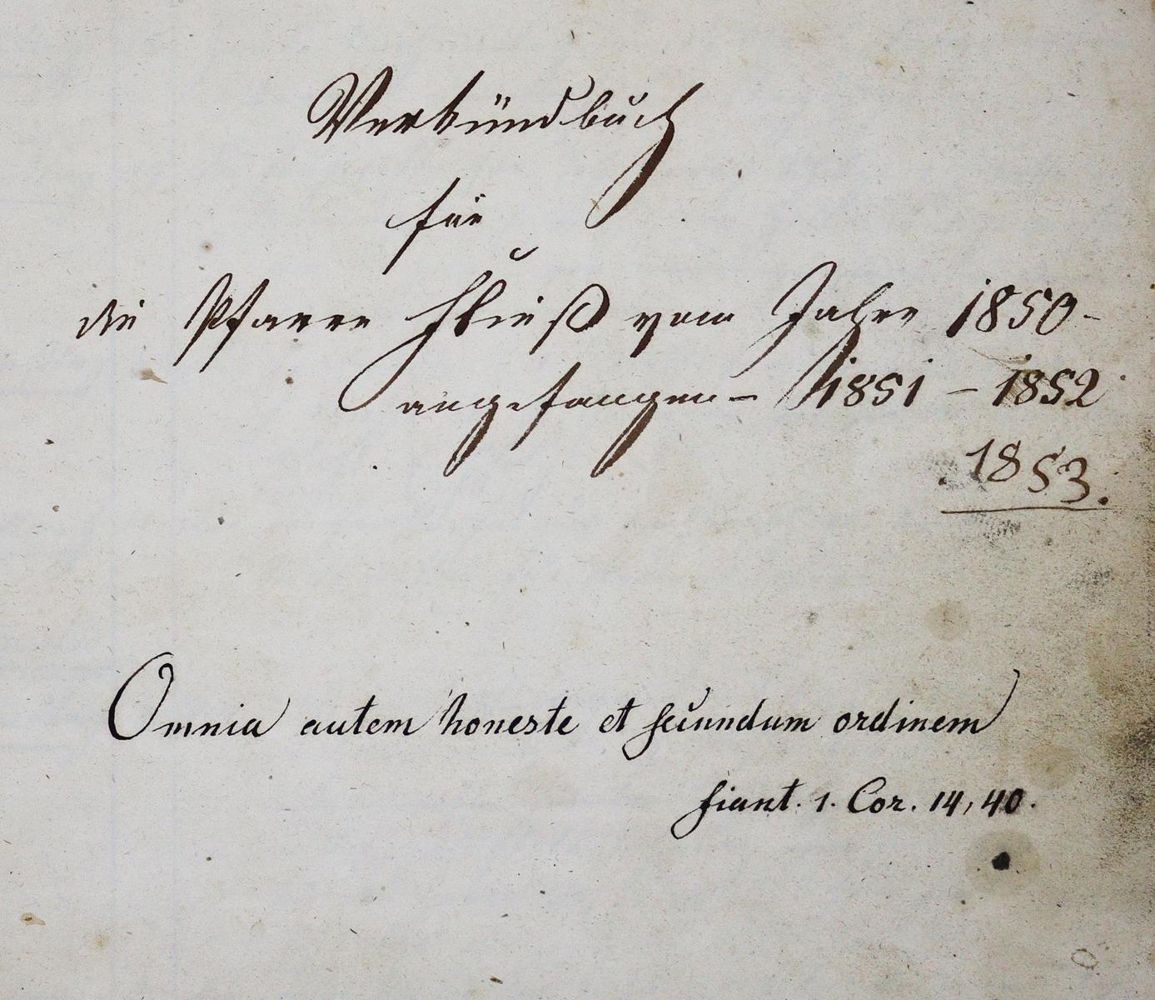 Verkündbuch
für
die Pfarre Fließ vom Jahre 1850 -
angefangen - 1851 - 1852
1853.
Omnia autem honeste et secundum ordinem
fiant. 1. Cor. 14, 40.